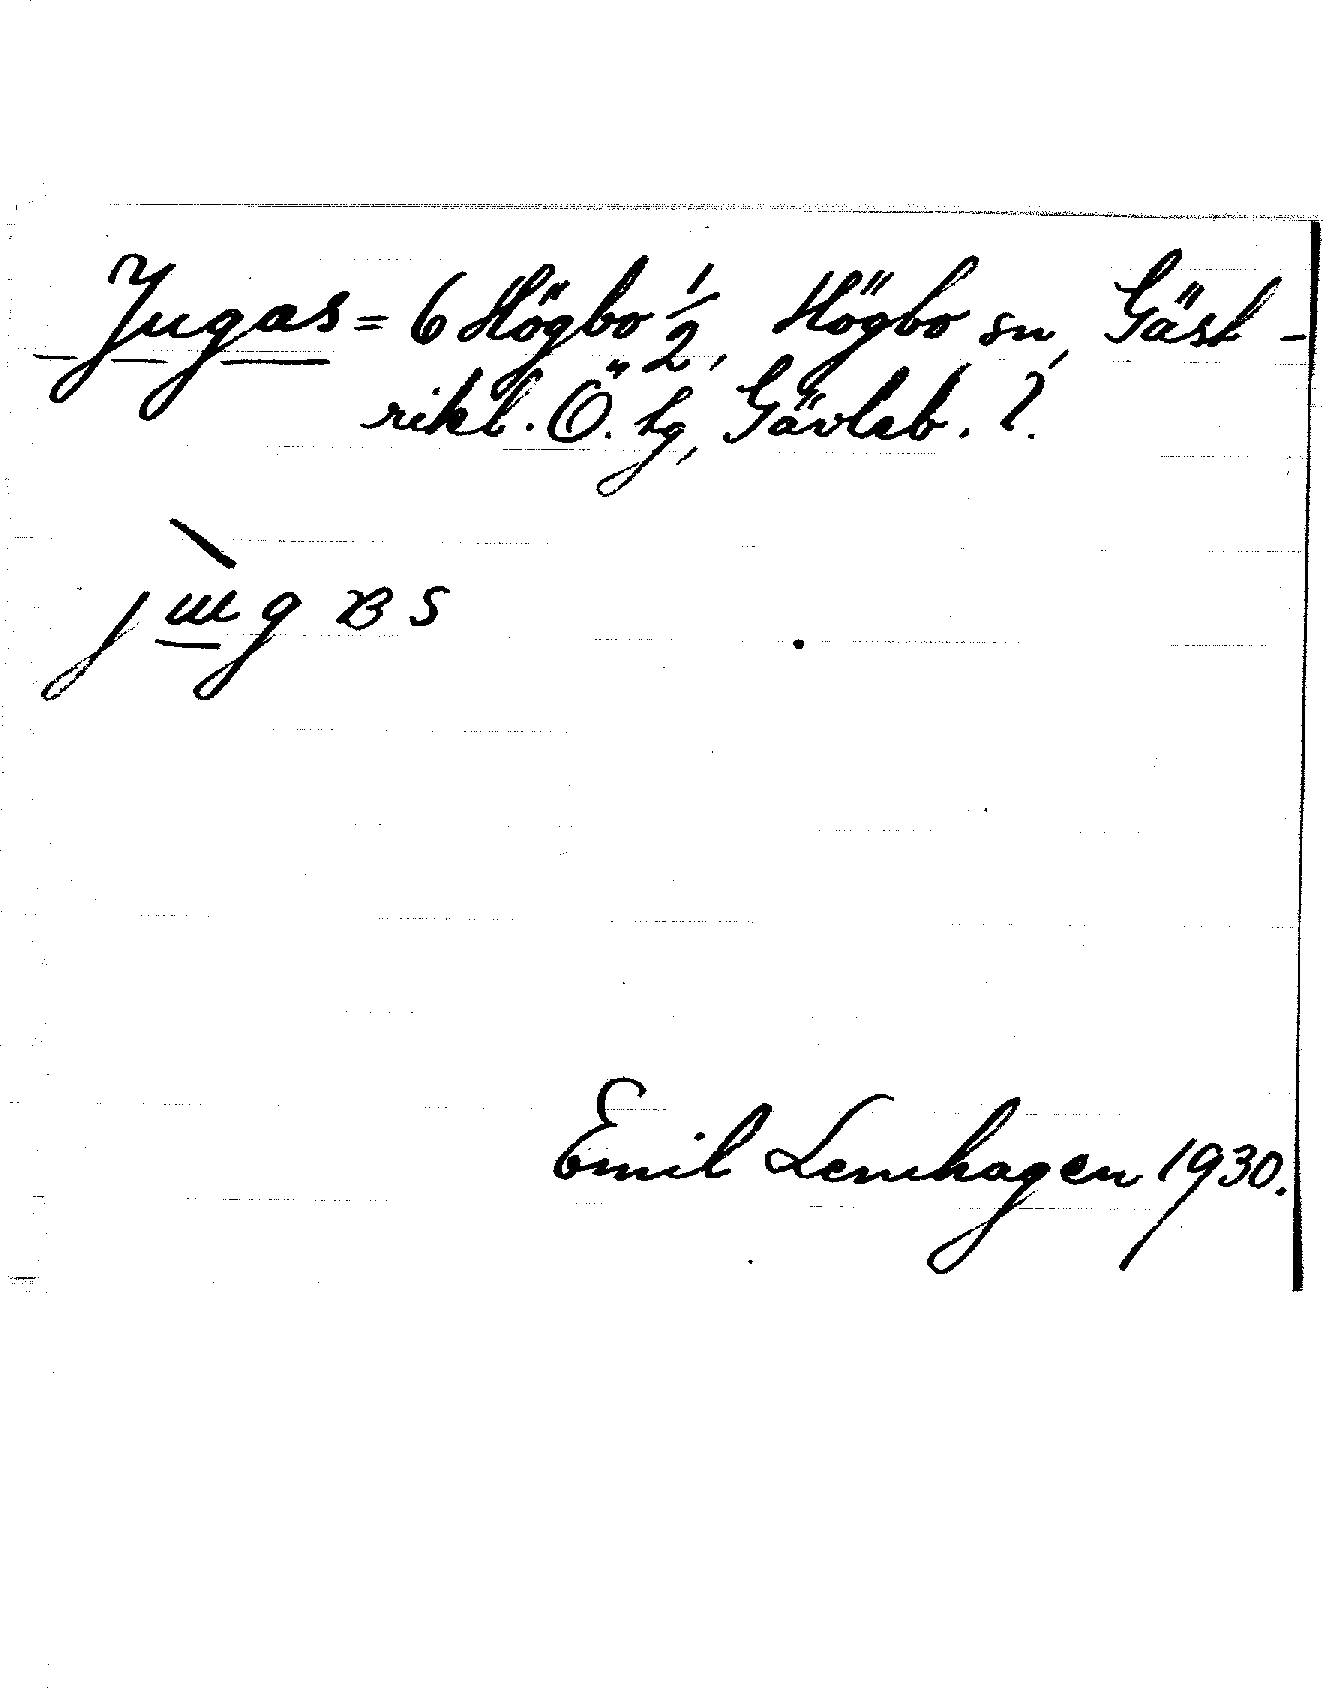 Jugas = 6 Högbo 1/2, Högbo sn, Gäst-
rikl. Ö. hg, Gävleb. l.
jɯgɞs
Emil Lenhagen 1930.